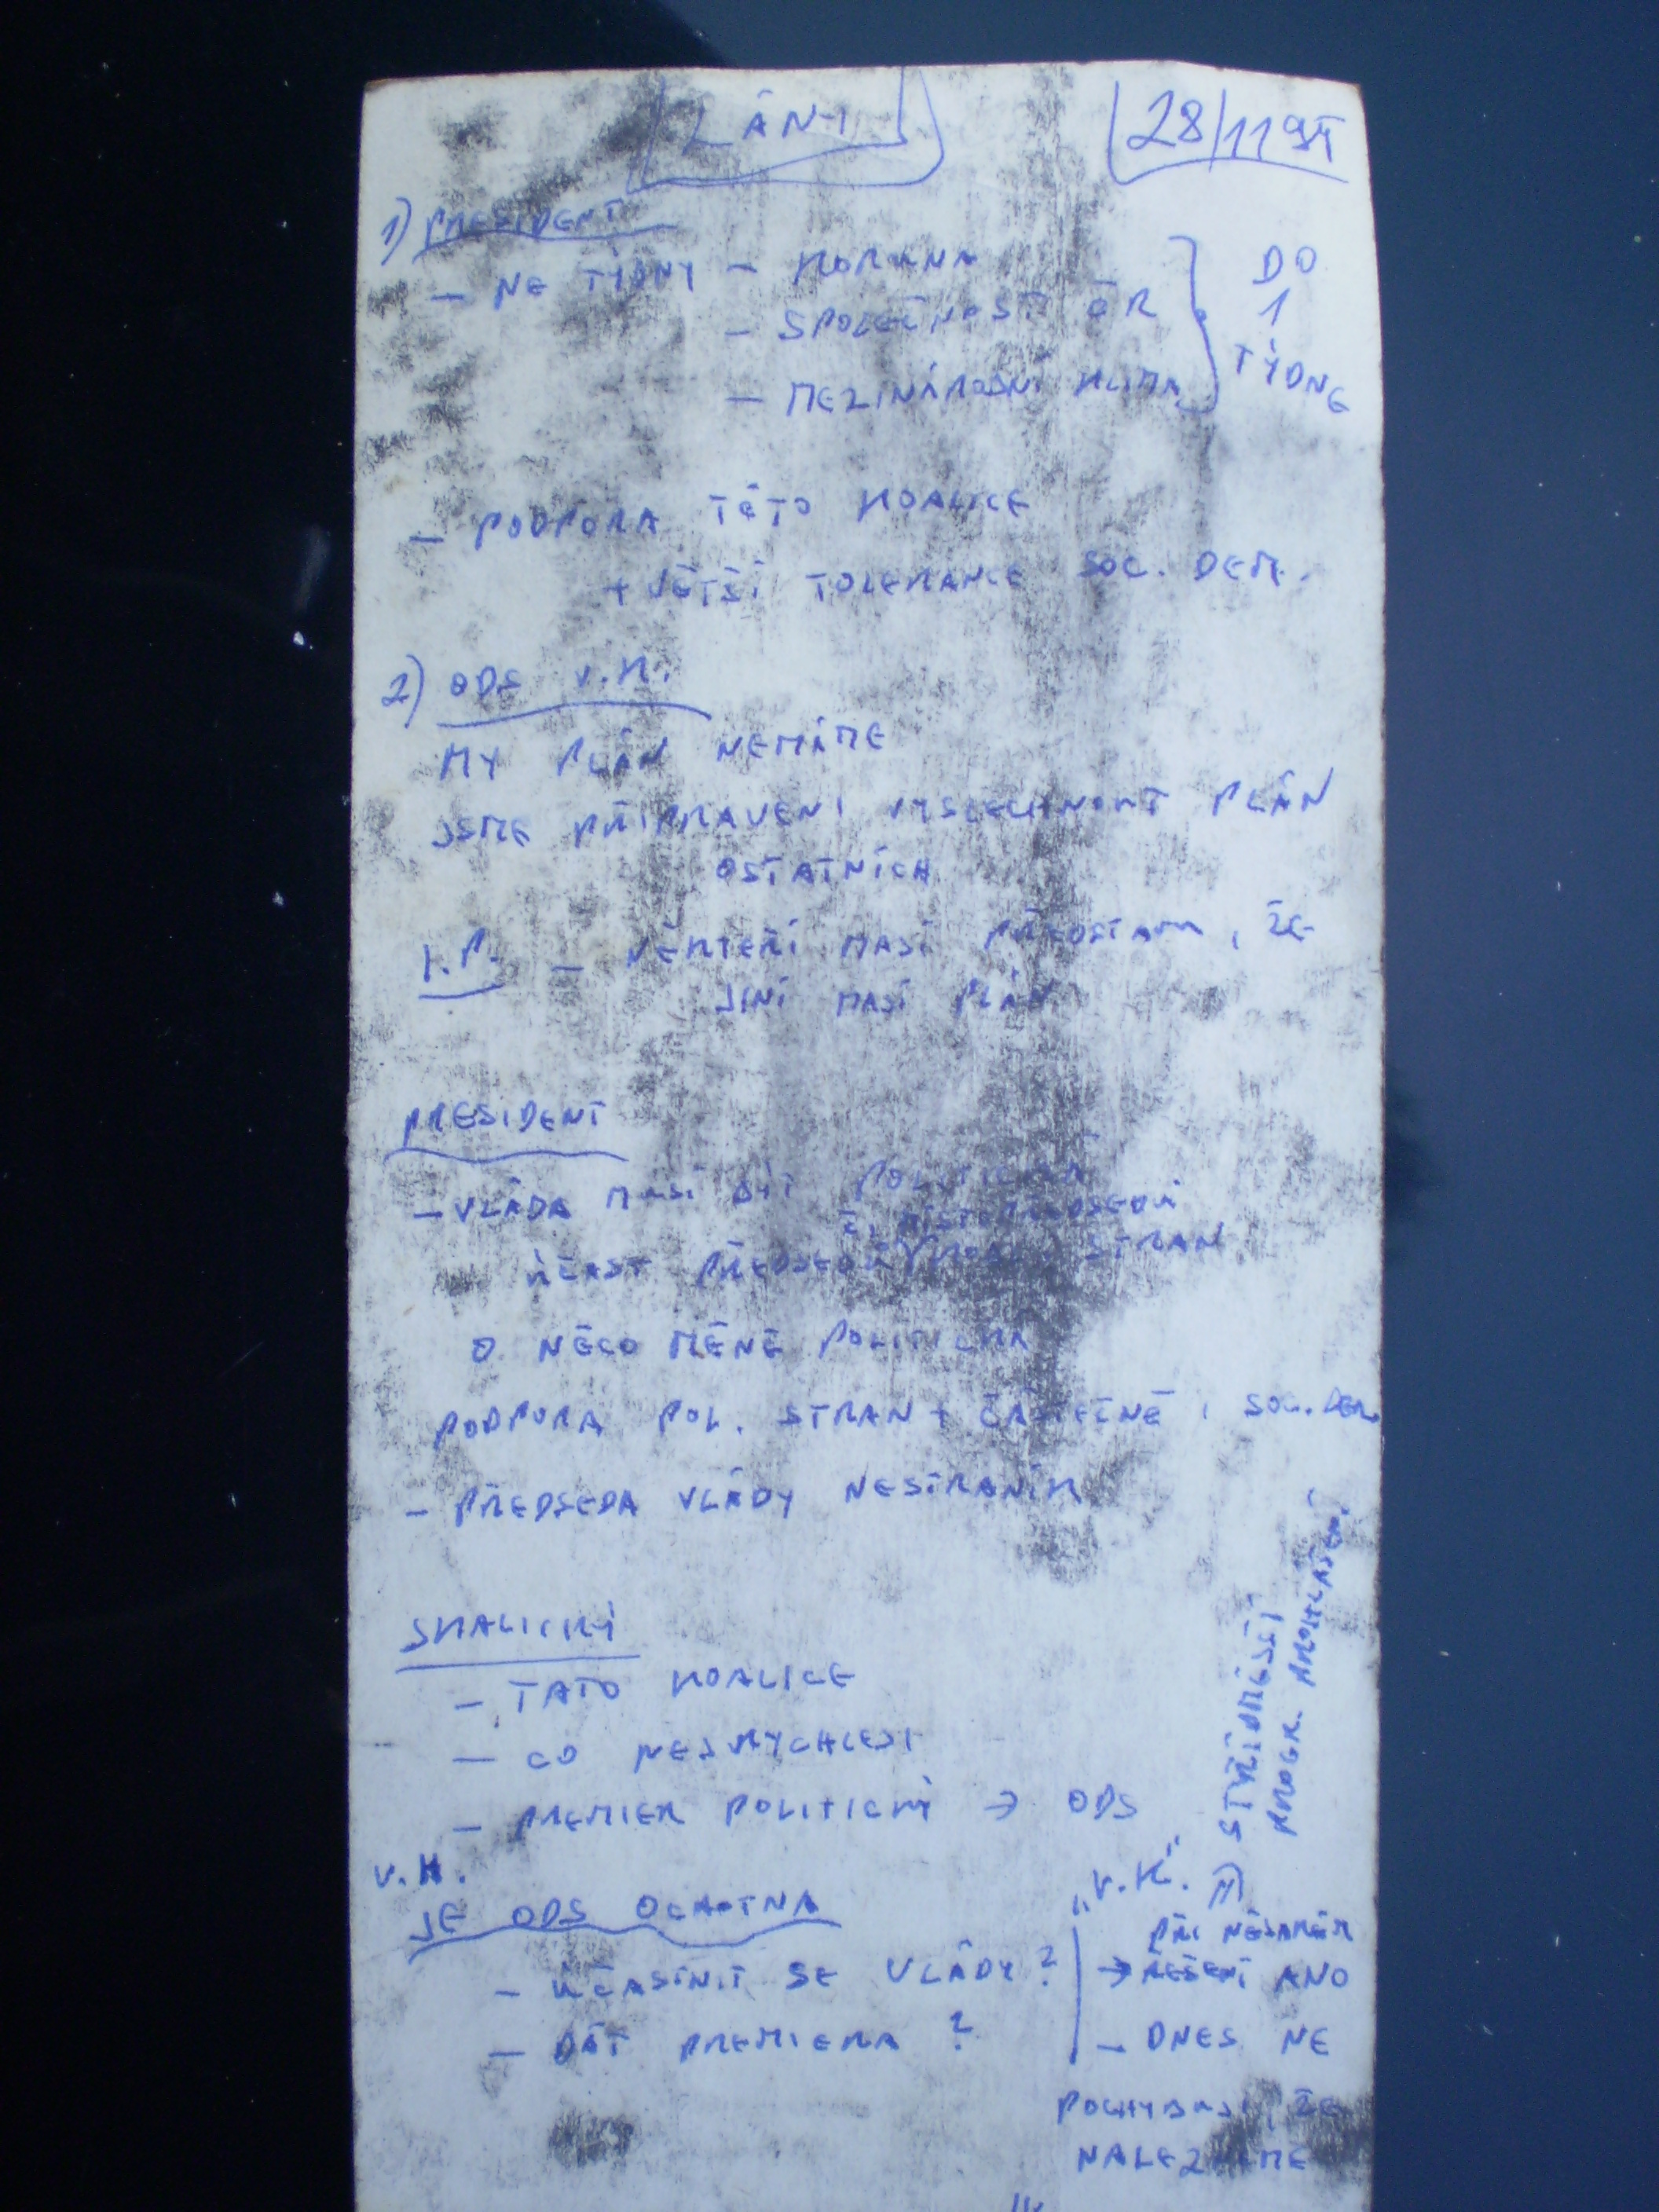 LÁNY
28/11 97
1) PRESIDENT
- NE TÝDNY - KORUNA
- SPOLEČNOST ČR
- MEZINÁRODNÍ KLIMA
DO
1
TÝDNE
- PODPORA TÉTO KOALICE
+ VĚTŠÍ TOLERANCE SOC. DEM.
2) ODS V.K.
MY PLÁN NEMÁME
JSME PŘIPRAVENI VYSLECHNOUT PLÁN
OSTATNÍCH
I.P. - NĚKTEŘÍ MAJÍ PŘEDSTAVU, ŽE
JINÍ MAJÍ PLÁN
PRESIDENT
- VLÁDA MUSÍ BÝT POLITICKÁ
ČI MÍSTOPŘEDSEDŮ
ÚČAST PŘEDSEDŮ STRAN
O NĚCO MÉNĚ POLITICKÁ
PODPORA POL. STRAN + ČÁSTEČNĚ I SOC. DEM.
- PŘEDSEDA VLÁDY NESTRANÍK
SKALICKÝ
- TATO KOALICE
- CO NEJRYCHLEJI
- PREMIER POLITICKÝ → ODS
STŘÍDMĚJŠÍ
PROGR. PROHLÁŠENÍ
V.H.
JE ODS OCHOTNA
- ÚČASTNIT SE VLÁDY?
- DÁT PREMIERA?
"V.K."
PŘI NĚJAKÉM
→ ŘEŠENÍ ANO
- DNES NE
POCHYBUJI, ŽE
NALEZNEME